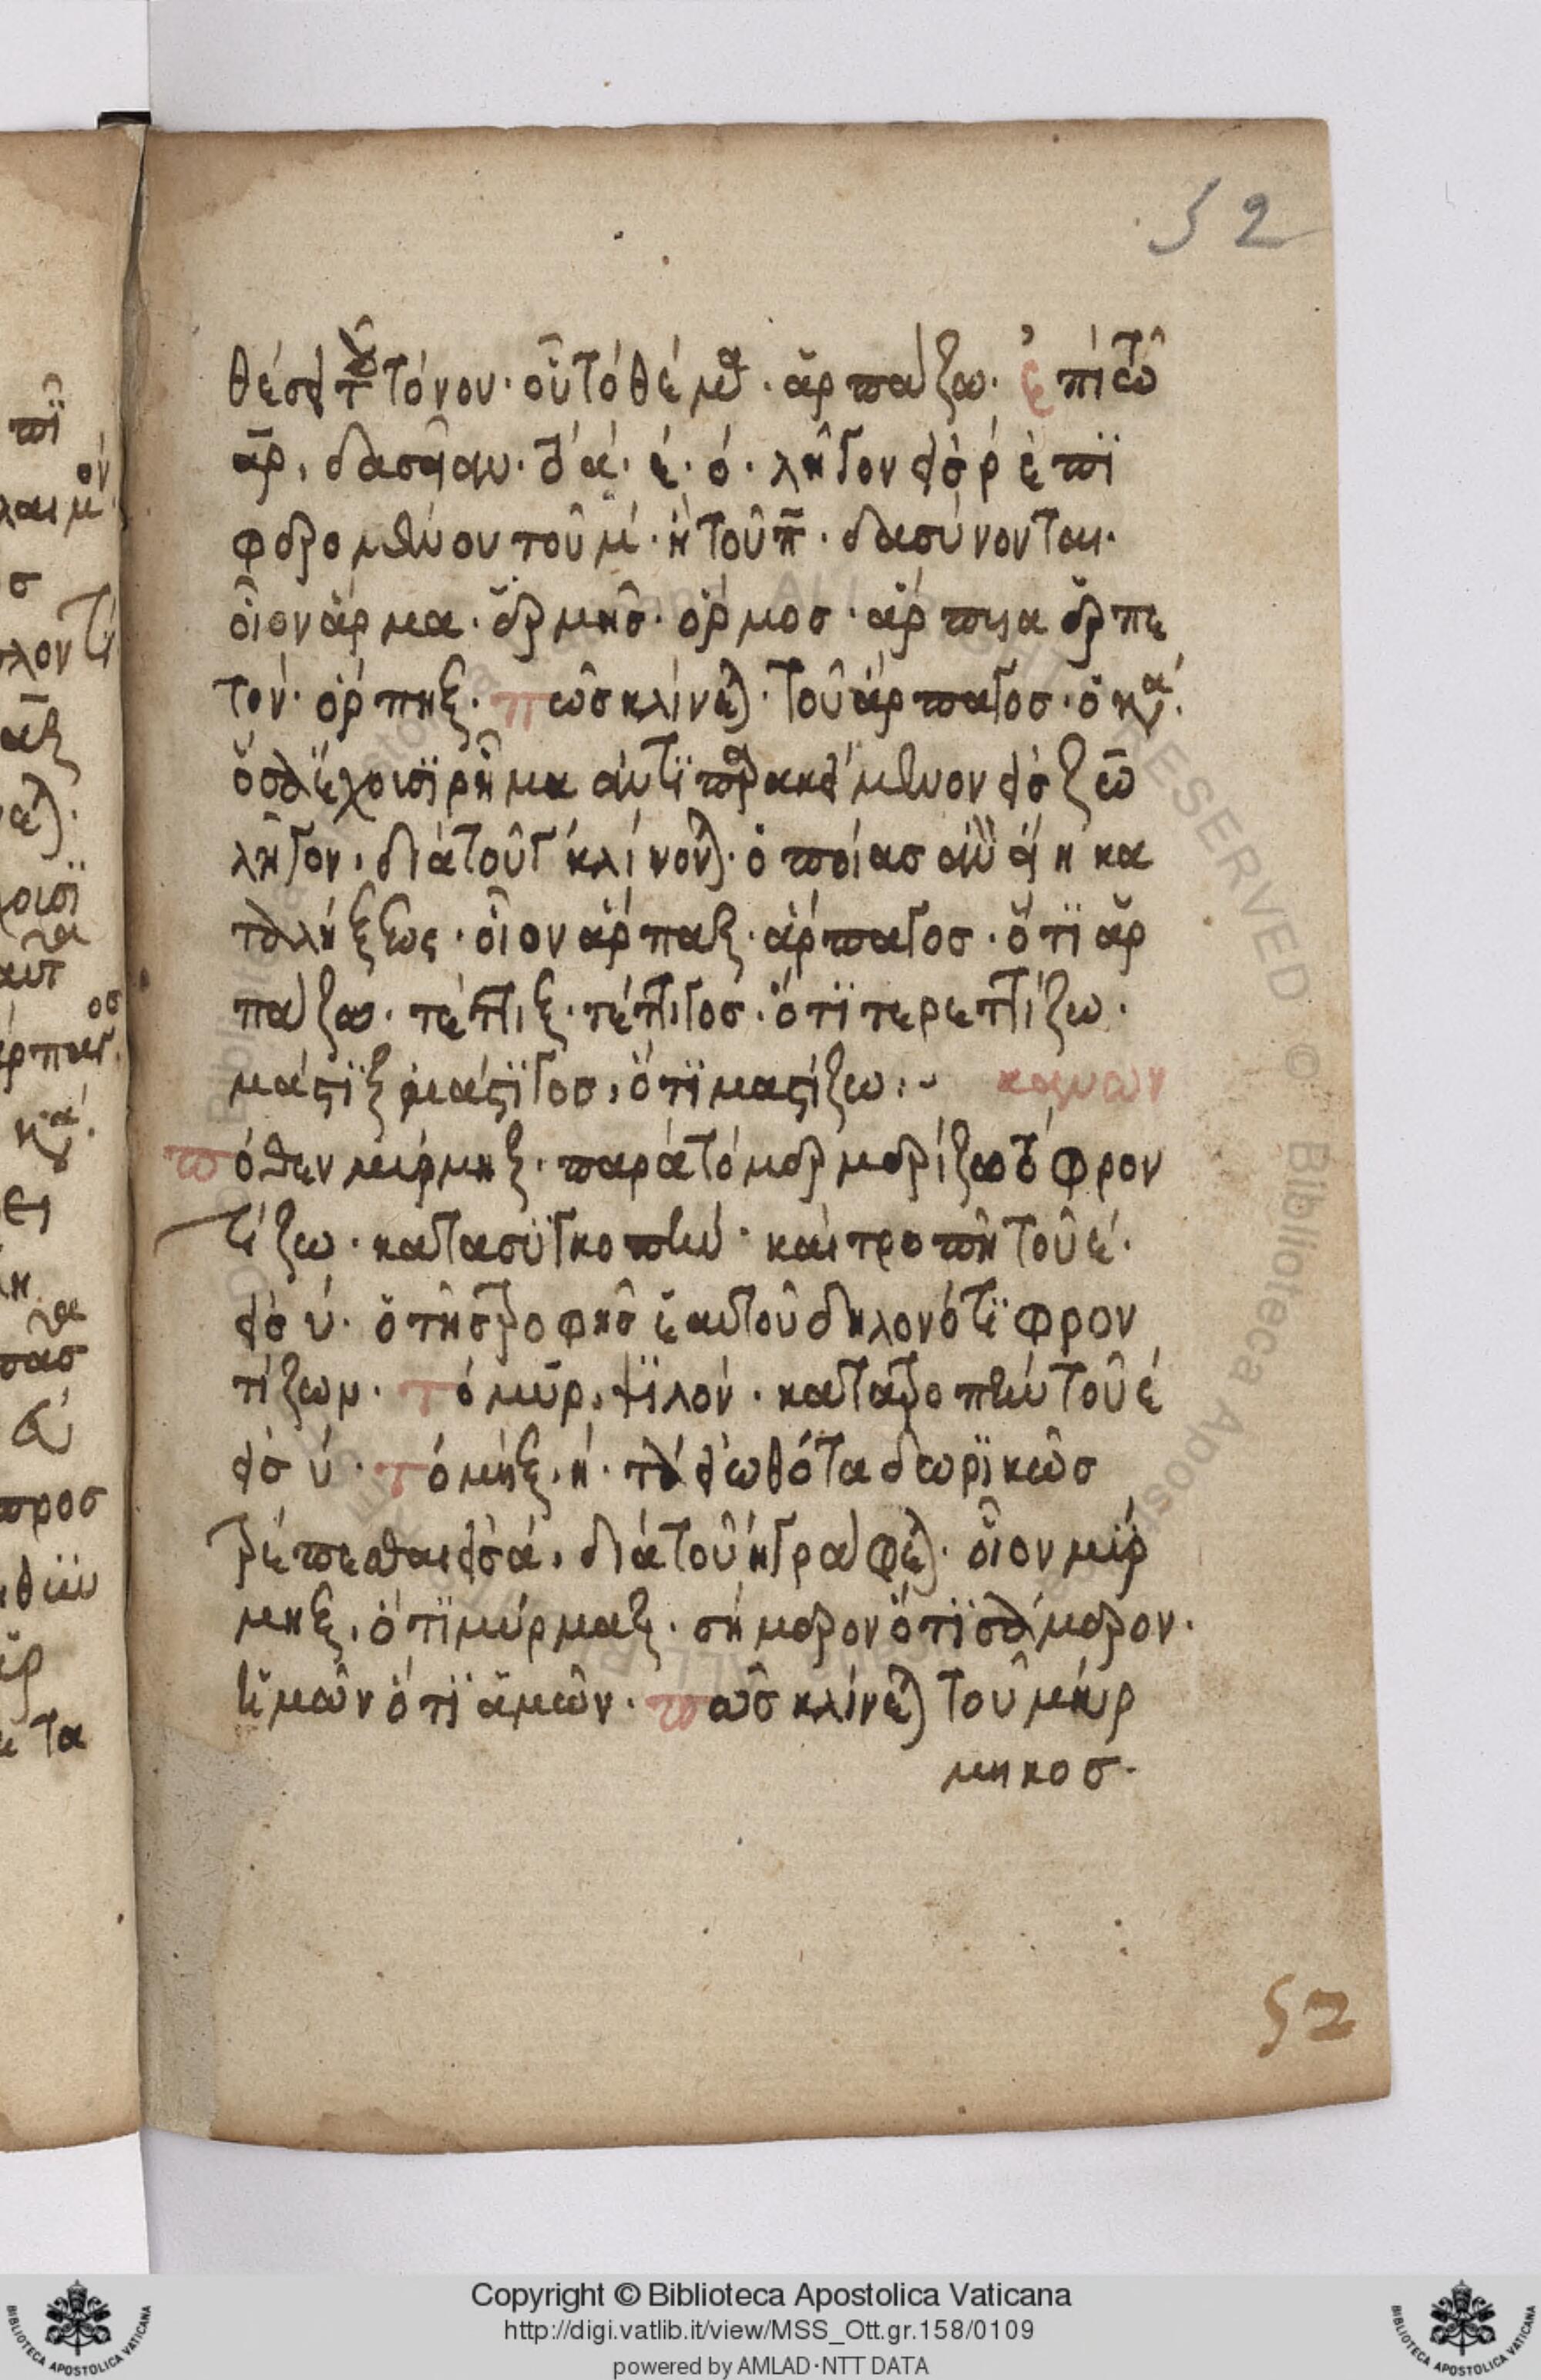 52
θέσει τὸν τόνον· οὗ τὸ θέμα· ἁρπάζω· ἐπὶ τῷ
αρ, δασεῖαν· τὰ ά· έ· ό· λῆγον εἰς ρ ἐπὶ
φερομένου τοῦ μ· ἢ τοῦ π· δασύνονται·
οἷον ἅρμα· ἑρμῆς· ὅρμος· ἅρπυια ἑρπε
τόν· ὅρπηξ· πῶς κλίνεται· τοῦ ἅρπαγος· ὁ κανών·
ὅσα ἔχουσι ῥῆμα ἀντιπαρακείμενον εἰς ζω
λῆγον, διὰ τοῦ γ κλίνονται· ὁποίας ἂν εἴη κα
ταλήξεως· οἷον ἅρπαξ· ἅρπαγος· ὅτι ἁρ
πάζω· τέττιξ· τέττιγος· ὅτι τερετίζω·
μάστιξ μάστιγος, ὅτι μαστίζω· κανὼν
πόθεν μύρμηξ· παρὰ τὸ μερμερίζω τὸ φρον
τίζω· κατὰ συγκοπὴν· καὶ τροπῇ τοῦ έ·
εἰς ύ· ὁ τῆς τροφῆς ἑαυτοῦ δηλονότι φρον
τίζων· τὸ μυρ, ψιλόν· κατὰ τροπὴν τοῦ έ
εἰς ύ· τὸ μηξ· ή· τὰ εἰωθότα δωρικῶς
τρέπεσθαι εἰς ά, διὰ τοῦ ή γράφεται· οἷον μύρ
μηξ, ὅτι μύρμαξ· σήμερον ὅτι σάμερον·
ἡμῶν ὅτι ἁμῶν· πῶς κλίνεται τοῦ μύρ
μηκος·
52
Copyright © Biblioteca Apostolica Vaticana
http://digi.vatlib.it/view/MSS_Ott.gr.158/0109
powered by AMLAD·NTT DATA